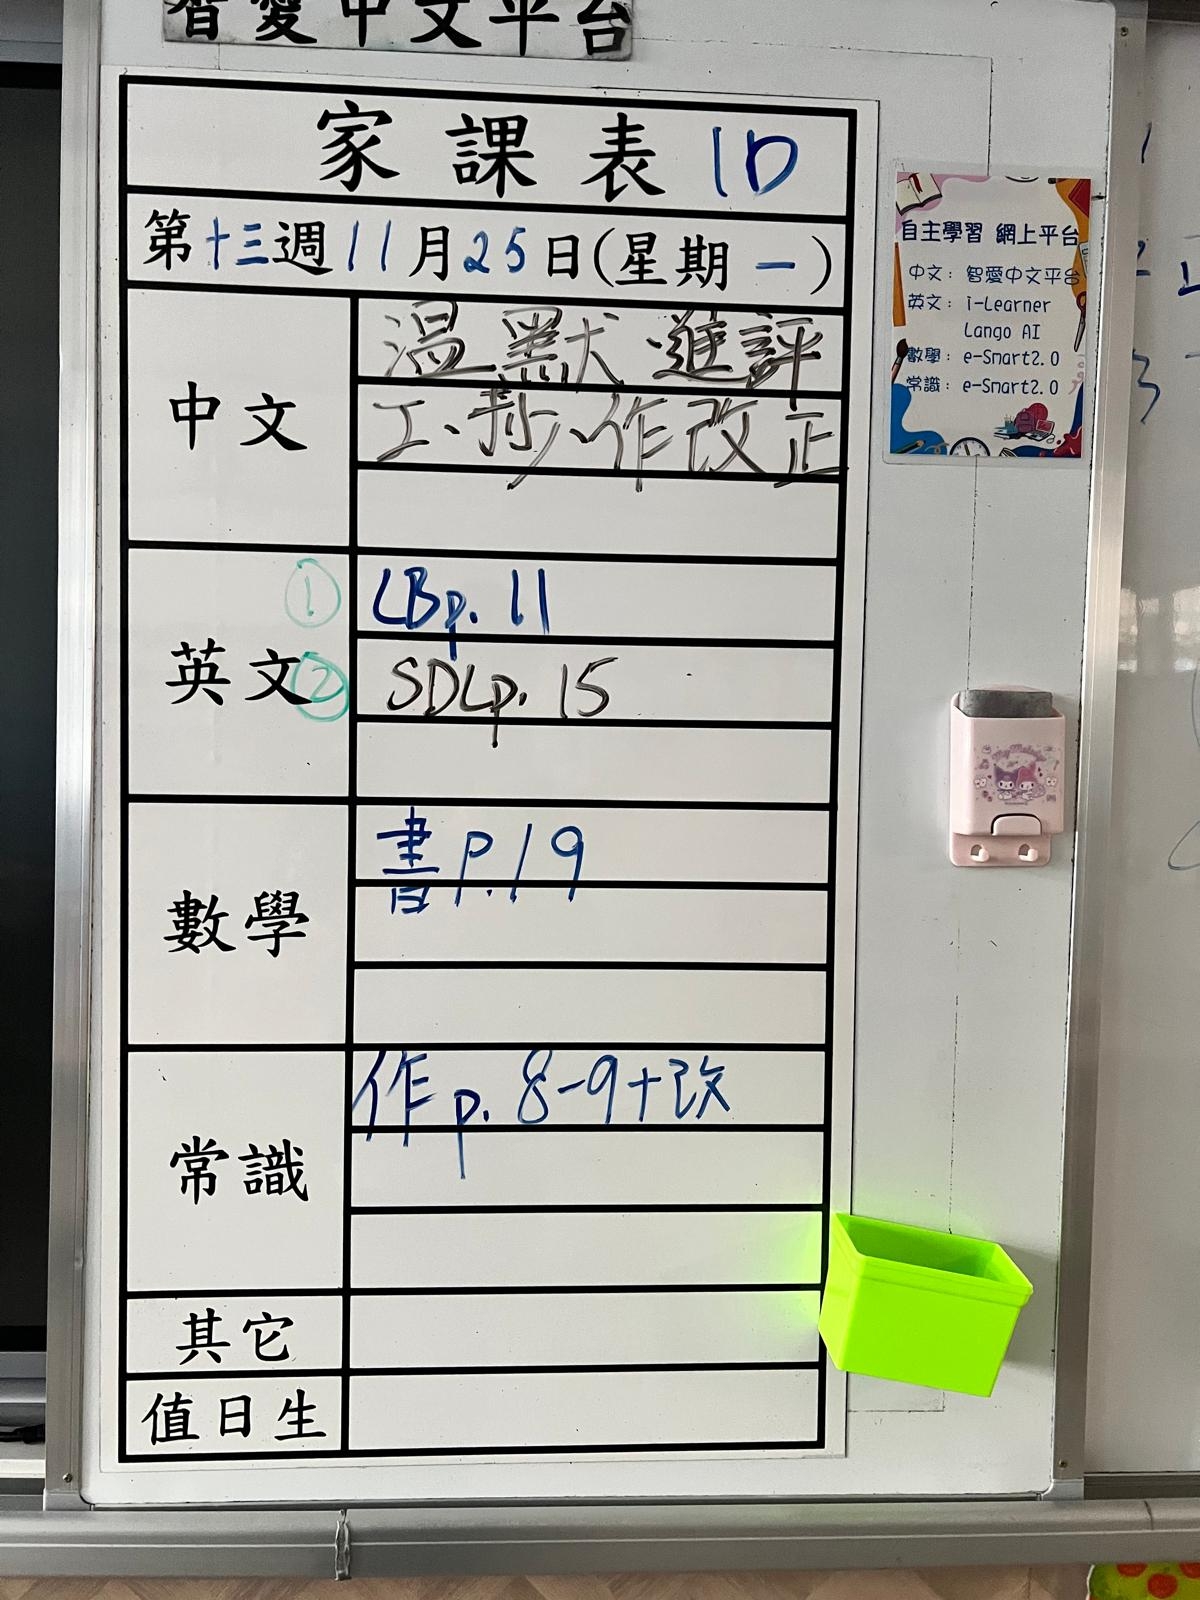 智愛中文平台
家課表 1D
第十三週11月25日(星期一)
中文
溫默進評
工、抄、作改正
英文
① LBp. 11
② SDLp. 15
數學
書P.19
常識
作p. 8-9+改
其它
值日生
自主學習 網上平台
中文: 智愛中文平台
英文: i-Learner
Lango AI
數學: e-Smart2.0
常識: e-Smart2.0
My Melody